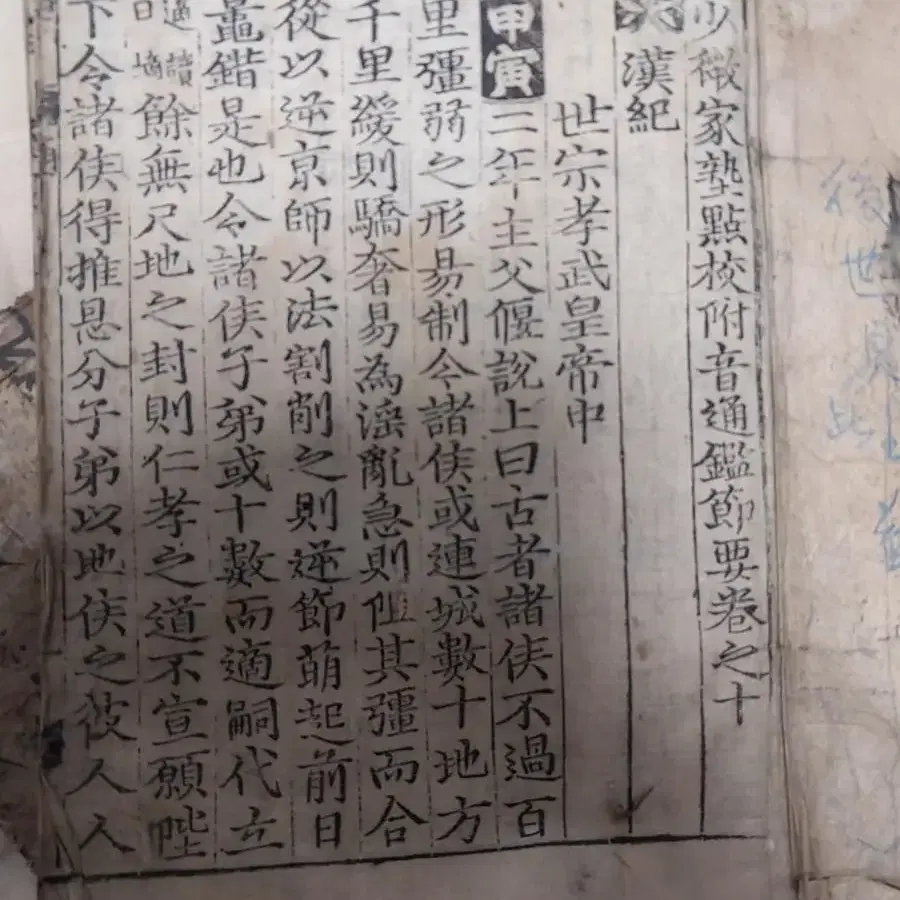 少微家塾點校附音通鑑節要卷之十
漢紀
世宗孝武皇帝中
甲寅三年主父偃說上曰古者諸侯不過百
里彊弱之形易制今諸侯或連城數十地方
千里緩則驕奢易為滛亂急則阻其彊而合
從以逆京師以法割削之則逆節萌起前日
鼂錯是也今諸侯子弟或十數而適嗣代立
適讀曰嫡餘無尺地之封則仁孝之道不宣願陛
下令諸侯得推恩分子弟以地侯之彼人人
後世見此